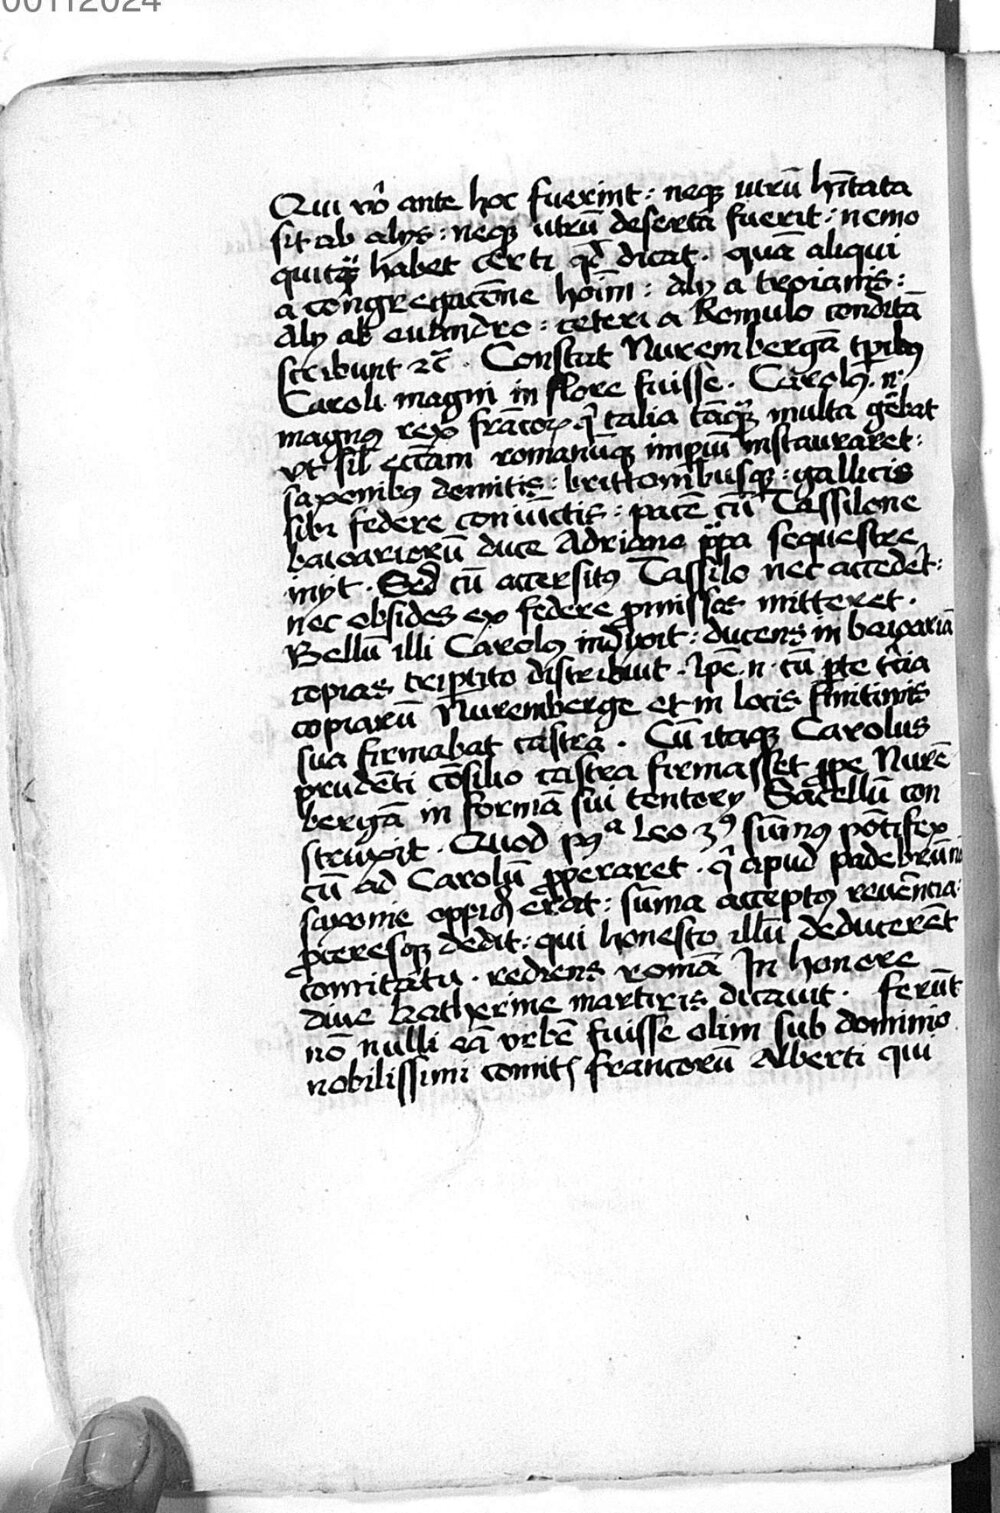 00112024
Qui vo᷑ ante hoc fuerint : neq; utrū hītata
sit ab alijs : neq; utrū deserta fuerit : nemo
quitq̄ habet certi qd̄ dicat . quā aliqui
a congregacōne hoīm : alij a troianis :
Alij ab euandro : ceteri a Romulo conditā
scribunt ⁊c̄ . Constat Nurembergā tpib9
Caroli magni in flore fuisse . Carol9 . n .
magn9 rex francoꝝ q̄ talia tāq̄ multa gēbat
vt sil̄ ecc̄am romanūq; impiū instauraret :
saxonib9 domitis : brittonibusq; : gallicis
sibi federe coniūctis : pacē cū Tassilone
baioariorū duce Adriano ppa sequestre
inijt . Sed cū accersit9 Tassilo nec accedet :
nec obsides ex federe ꝓmissos mitteret .
Bellū illi Carol9 indixit : ducens in baioariā
copias tripꝑtito distribuit . Ipē . n . cū ꝑte t̄cia
copiarū Nuremberge et in locis finitimis
sua firmabat castra . Cū itaq; Carolus
prudēti cōsilio castra firmasset ꝓpe Nurē
bergā in formā sui tentorij Sacellū con
struxit . Quod p9ᵃ Leo 3⁹ sūm9 pōtifex
cū ad Carolū ꝓperaret . q̄ apud padebrūn
saxonie oppid erat : sūma accept9 reuēncia :
ꝓceresq; dedit : qui honesto illū deducerēt
comitatu . rediens romā In honore
diue katherine martiris dicauit . Ferūt
nō nulli eā vrbē fuisse olim sub dominio
nobilissimi comitʃ francorū Alberti qui